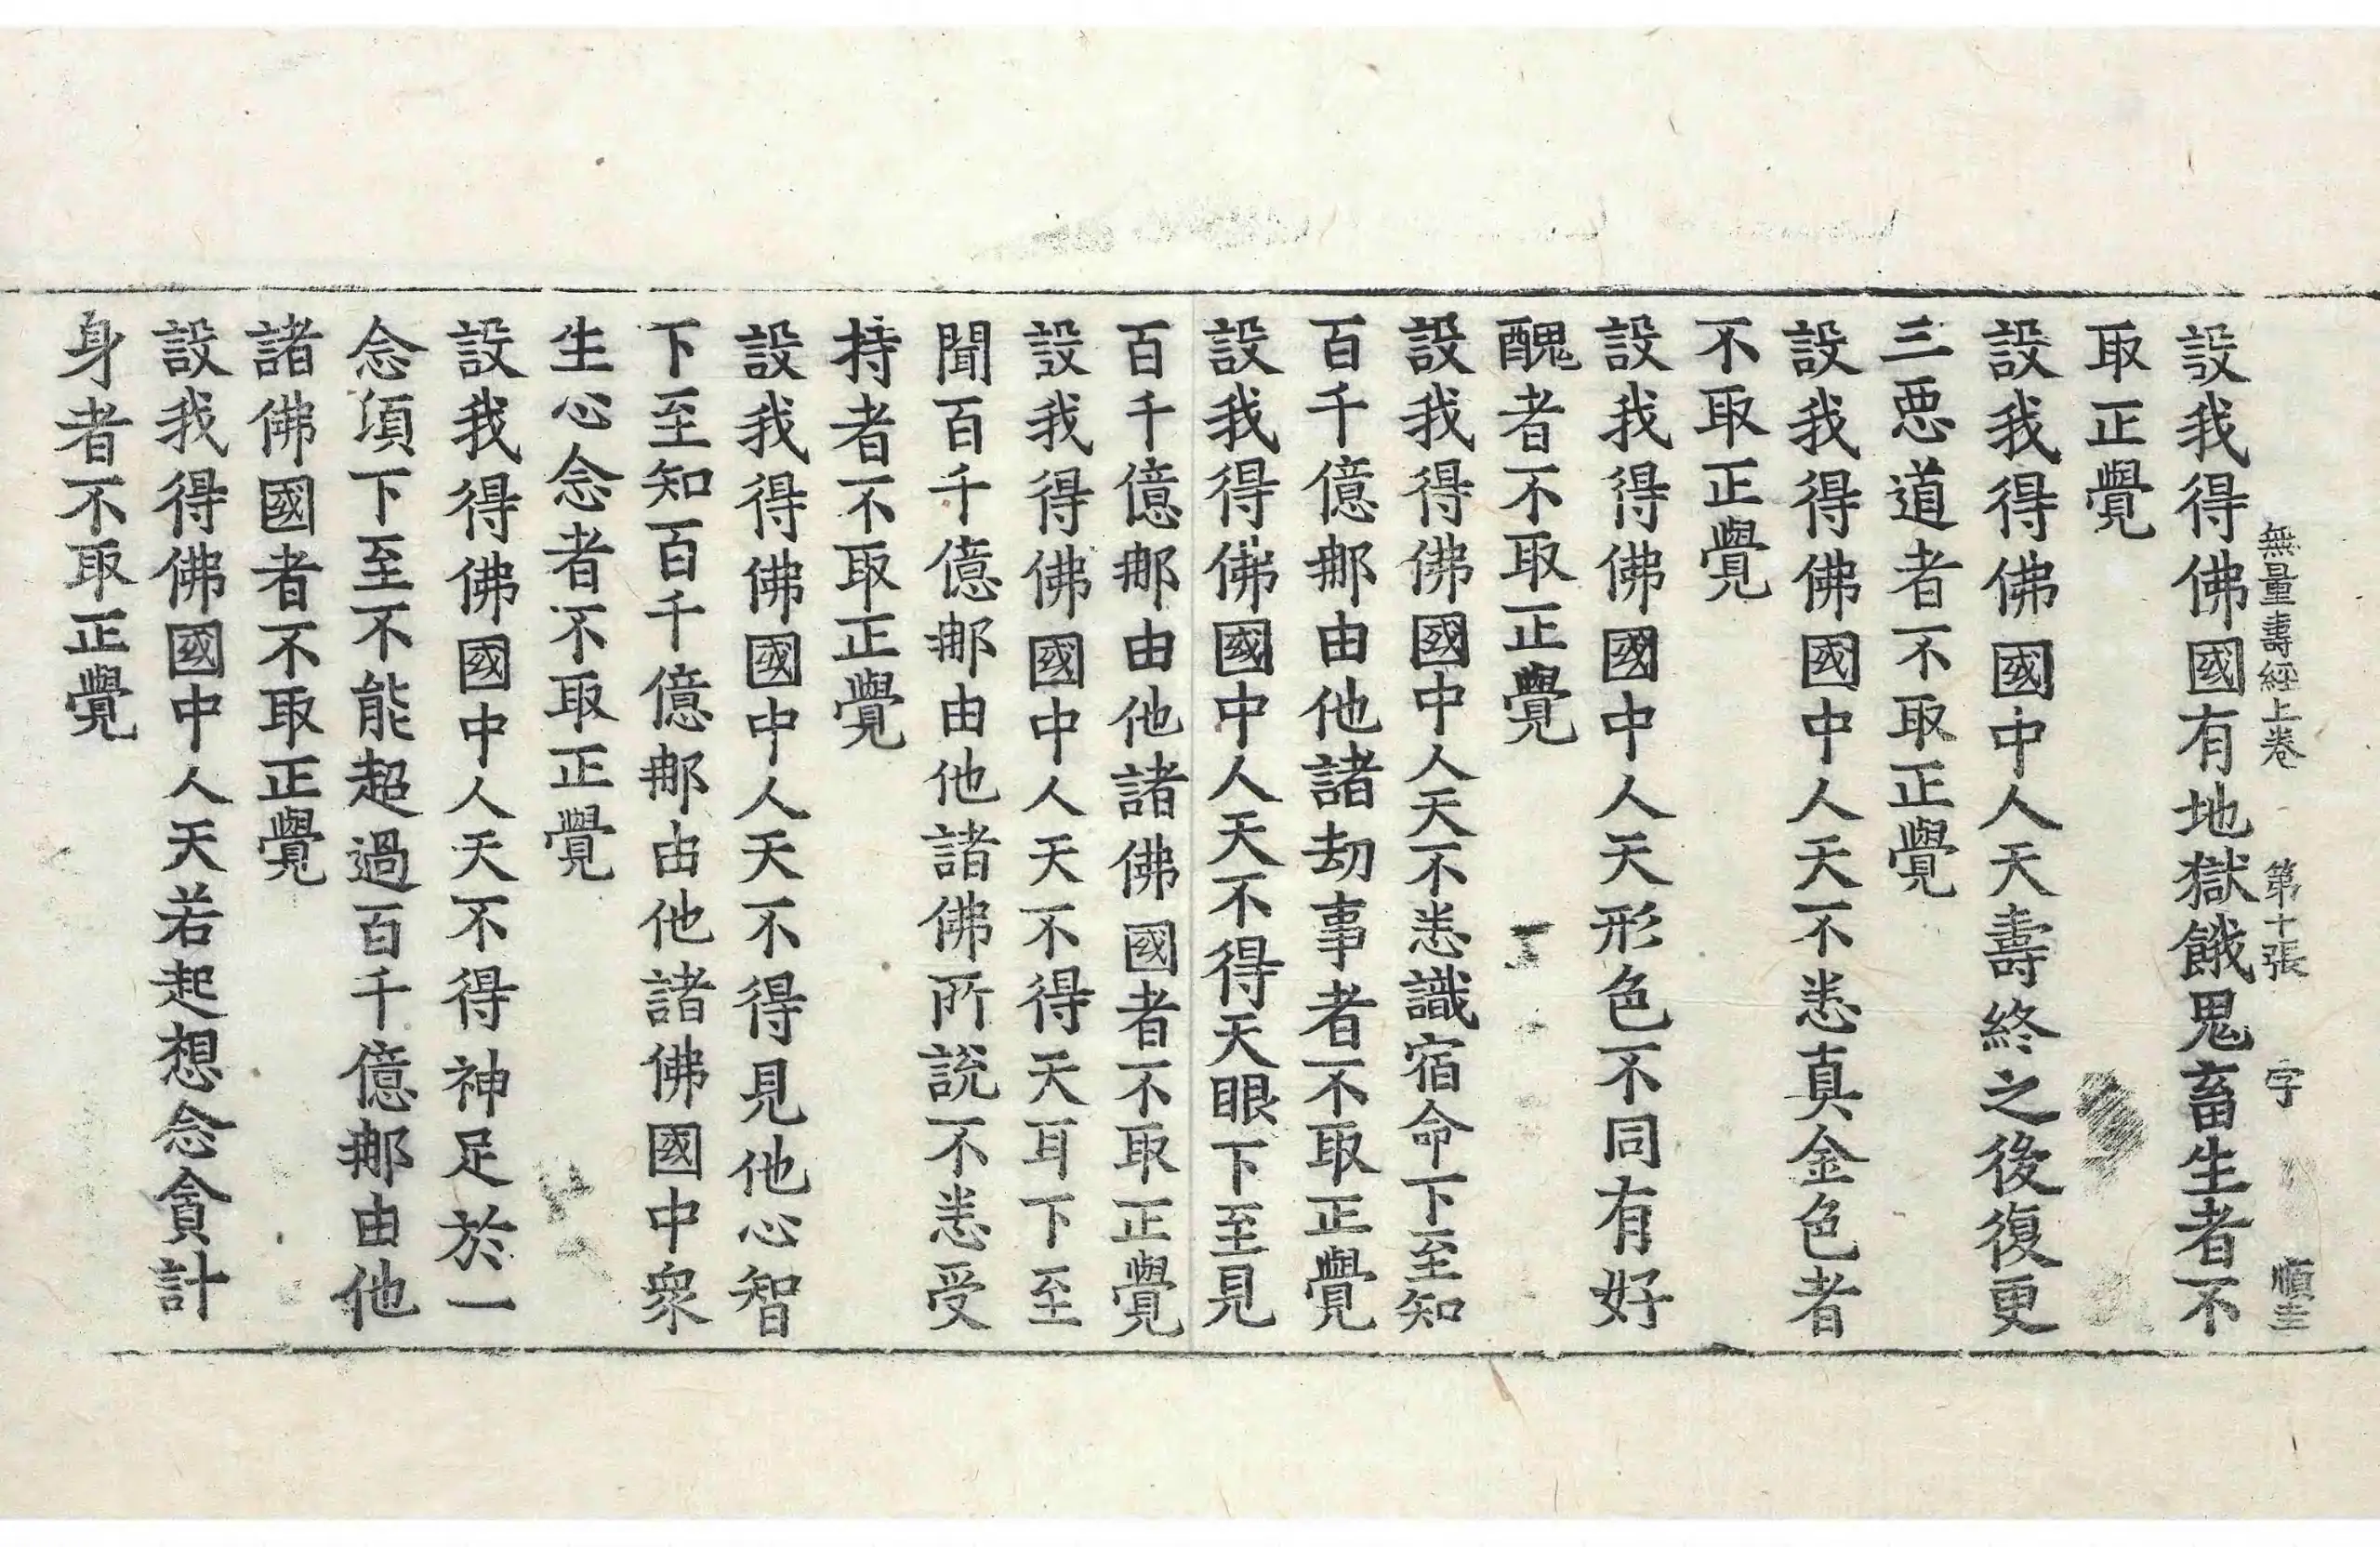 無量壽經上卷 第十張 字 順圭
設我得佛國有地獄餓鬼畜生者不
取正覺
設我得佛國中人天壽終之後復更
三惡道者不取正覺
設我得佛國中人天不悉真金色者
不取正覺
設我得佛國中人天形色不同有好
醜者不取正覺
設我得佛國中人天不悉識宿命下至知
百千億那由他諸劫事者不取正覺
設我得佛國中人天不得天眼下至見
百千億那由他諸佛國者不取正覺
設我得佛國中人天不得天耳下至
聞百千億那由他諸佛所說不悉受
持者不取正覺
設我得佛國中人天不得見他心智
下至知百千億那由他諸佛國中眾
生心念者不取正覺
設我得佛國中人天不得神足於一
念頃下至不能超過百千億那由他
諸佛國者不取正覺
設我得佛國中人天若起想念貪計
身者不取正覺